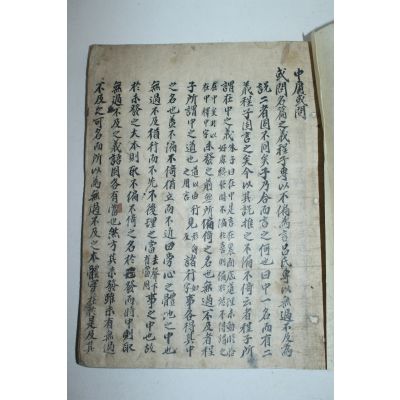 中庸或問
或問名篇之義程子專以不偏為言呂氏專以無過不及為
說二者固不同矣子乃合而言之何也曰中一名而有二
義程子固言之矣今以其說推之不偏不倚云者程子所
謂在中之義
未發之前無所偏倚之名也無過不及者程
子所謂中之道也 見諸行事各得其中
之名也盖不偏不倚猶立而不近四旁心之體地之中也
無過不及猶行而不先不後理之當 事之中也故
於未發之大本則取不偏不倚之名於已發而時中則取
無過不及之義語固各有當也然方其未發雖未有無過
不及之可名而所以為無過不及之本體實在於是及其